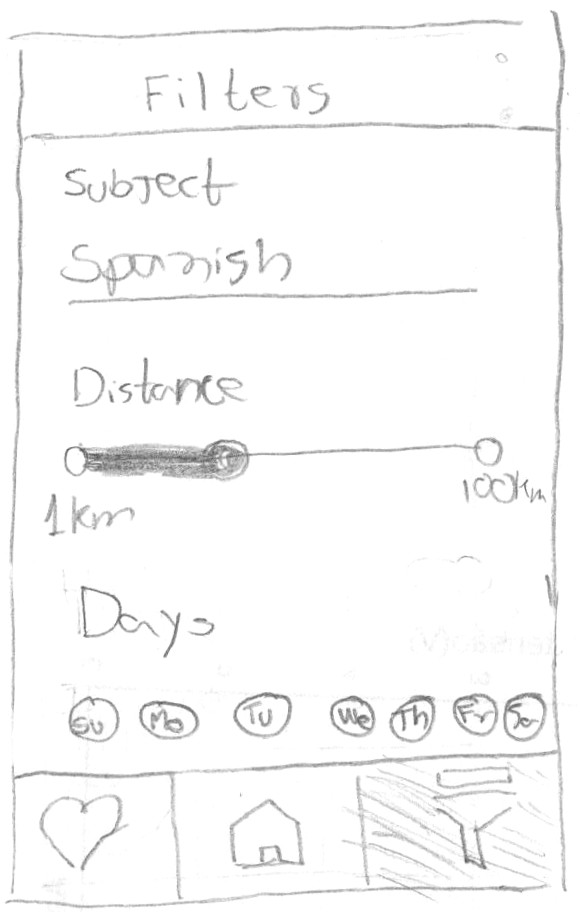 Filters
Subject
Spanish
Distance
1km 100km
Days
Su Mo Tu We Th Fr Sa